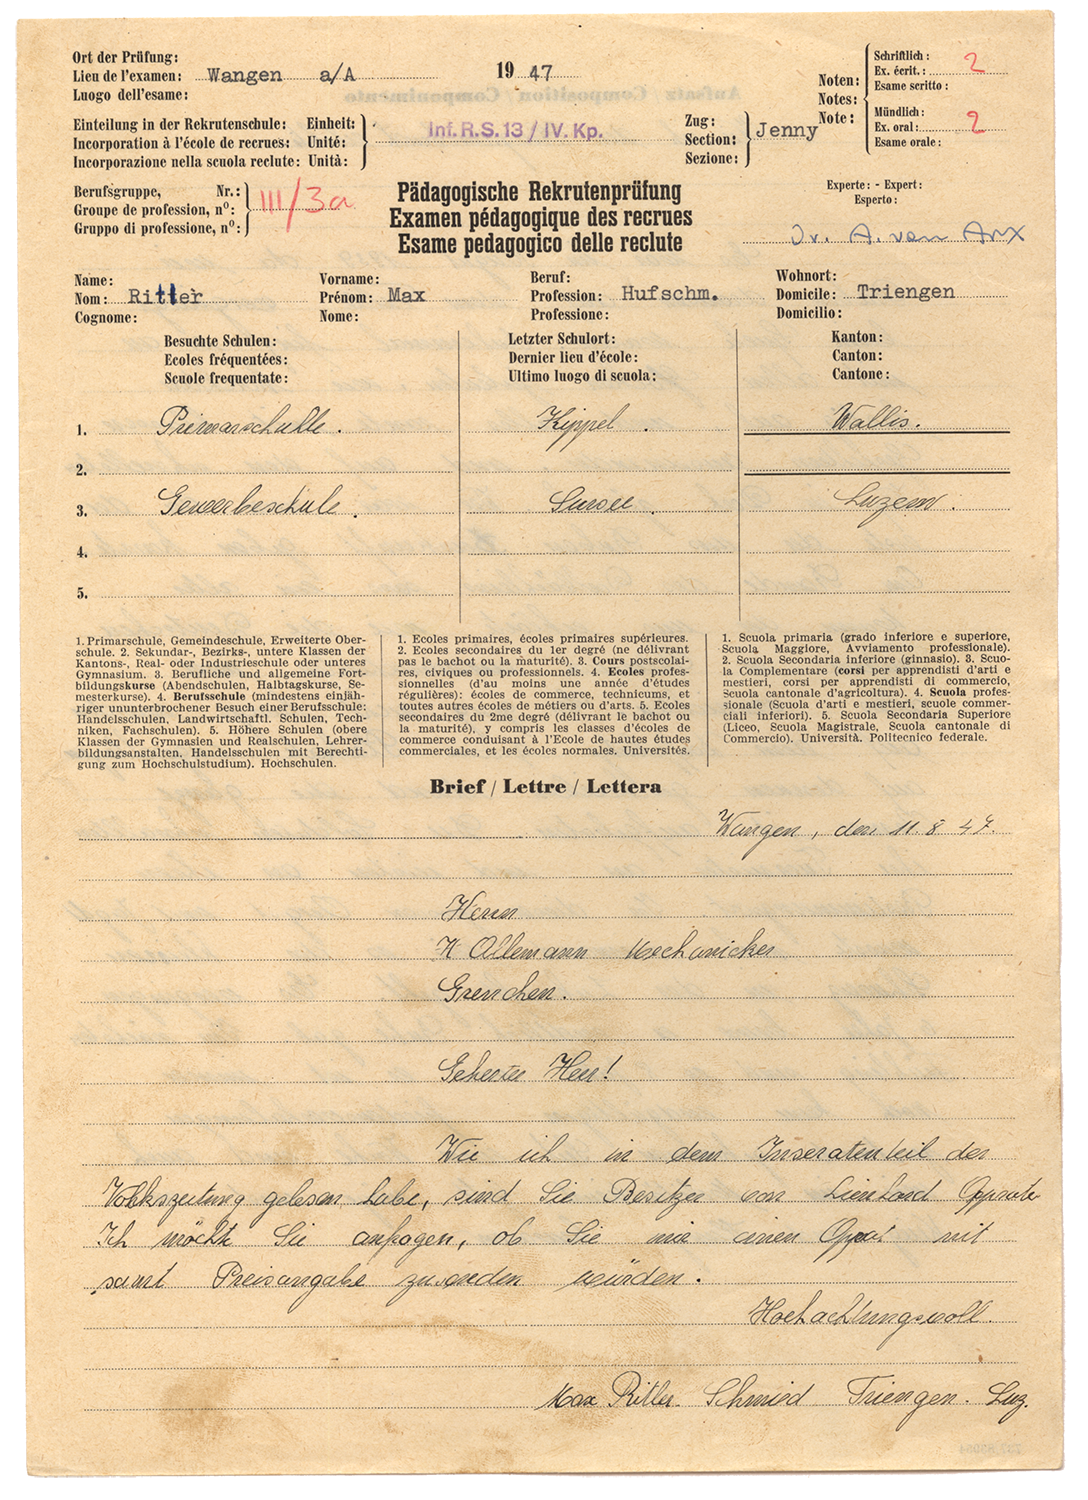 Ort der Prüfung:
Lieu de l'examen: Wangen a/A
Luogo dell'esame:
1947
Noten:
Notes:
Note:
Schriftlich:
Ex. écrit.: 2
Esame scritto:
Mündlich:
Ex. oral: 2
Esame orale:
Einteilung in der Rekrutenschule: Einheit:
Incorporation à l'école de recrues: Unité:
Incorporazione nella scuola reclute: Unità:
Inf. R.S. 13 / IV. Kp.
Zug:
Section: Jenny
Sezione:
Berufsgruppe, Nr.:
Groupe de profession, nº: III/3a
Gruppo di professione, nº:
Pädagogische Rekrutenprüfung
Examen pédagogique des recrues
Esame pedagogico delle reclute
Experte: - Expert:
Esperto:
Dr. A. von Arx
Name:
Nom: Ritter
Cognome:
Vorname:
Prénom: Max
Nome:
Beruf:
Profession: Hufschm.
Professione:
Wohnort:
Domicile: Triengen
Domicilio:
Besuchte Schulen:
Ecoles fréquentées:
Scuole frequentate:
Letzter Schulort:
Dernier lieu d'école:
Ultimo luogo di scuola:
Kanton:
Canton:
Cantone:
1. Primarschulle. Kippel. Wallis.
2.
3. Gewerbeschule. Sursee. Luzern.
4.
5.
1. Primarschule, Gemeindeschule, Erweiterte Ober-
schule. 2. Sekundar-, Bezirks-, untere Klassen der
Kantons-, Real- oder Industrieschule oder unteres
Gymnasium. 3. Berufliche und allgemeine Fort-
bildungskurse (Abendschulen, Halbtagskurse, Se-
mesterkurse). 4. Berufsschule (mindestens einjäh-
riger ununterbrochener Besuch einer Berufsschule:
Handelsschulen, Landwirtschaftl. Schulen, Tech-
niken, Fachschulen). 5. Höhere Schulen (obere
Klassen der Gymnasien und Realschulen, Lehrer-
bildungsanstalten, Handelsschulen mit Berechti-
gung zum Hochschulstudium). Hochschulen.
1. Ecoles primaires, écoles primaires supérieures.
2. Ecoles secondaires du 1er degré (ne délivrant
pas le bachot ou la maturité). 3. Cours postscolai-
res, civiques ou professionnels. 4. Ecoles profes-
sionnelles (d'au moins une année d'études
régulières): écoles de commerce, technicums, et
toutes autres écoles de métiers ou d'arts. 5. Ecoles
secondaires du 2me degré (délivrant le bachot ou
la maturité), y compris les classes d'écoles de
commerce conduisant à l'Ecole de hautes études
commerciales, et les écoles normales. Universités.
1. Scuola primaria (grado inferiore e superiore,
Scuola Maggiore, Avviamento professionale).
2. Scuola Secondaria inferiore (ginnasio). 3. Scuo-
la Complementare (corsi per apprendisti d'arti e
mestieri, corsi per apprendisti di commercio,
Scuola cantonale d'agricoltura). 4. Scuola profes-
sionale (Scuola d'arti e mestieri, scuole commer-
ciali inferiori). 5. Scuola Secondaria Superiore
(Liceo, Scuola Magistrale, Scuola cantonale di
Commercio). Università. Politecnico federale.
Brief / Lettre / Lettera
Wangen, den 11. 8. 47.
Herrn
Allemann Mechanicker
Grenchen.
Geherter Herr!
Wie ich in dem Inseratenteil der
Volkszeitung gelesen habe, sind Sie Besitzer von Lienhard Apprate
Ich möchte Sie anfragen, ob Sie mir einen Aprat mit
samt Preisangabe zusenden würden.
Hochachtungsvoll.
Max Ritler. Schmied Triengen. Luz.